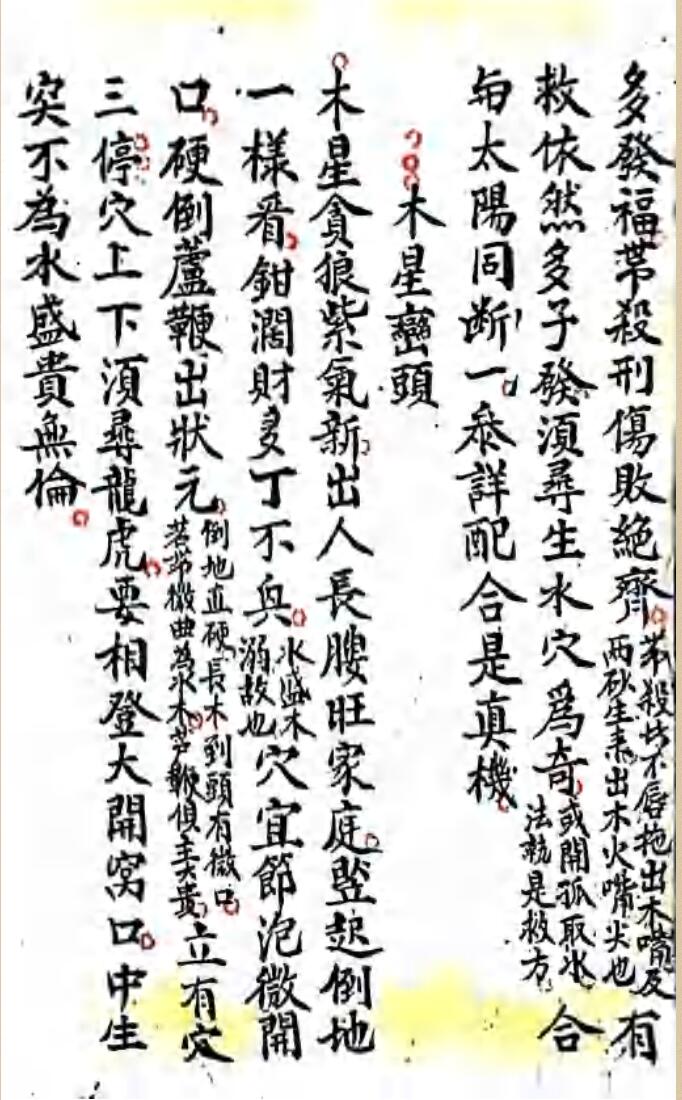 多發福帶殺刑傷敗絕齊帶殺者不唇拖出木嘴及兩砂生來出木火嘴尖也有
救依然多子發須尋生水穴為奇或開孤取水法就是救方合
与太陽同斷一叅詳配合是真機
木星巒頭
木星貪狼紫氣新出人長腰旺家庭竪起倒地
一樣看鉗濶財多丁不興水盛木溺故也穴宜節泡微開
口硬倒蘆鞭出狀元倒地直硬長木到頭有微口若帶微曲為水木芦鞭値主大貴立有穴
三停穴上下須尋龍虎要相登大開窩口中生
突不為水盛貴無倫